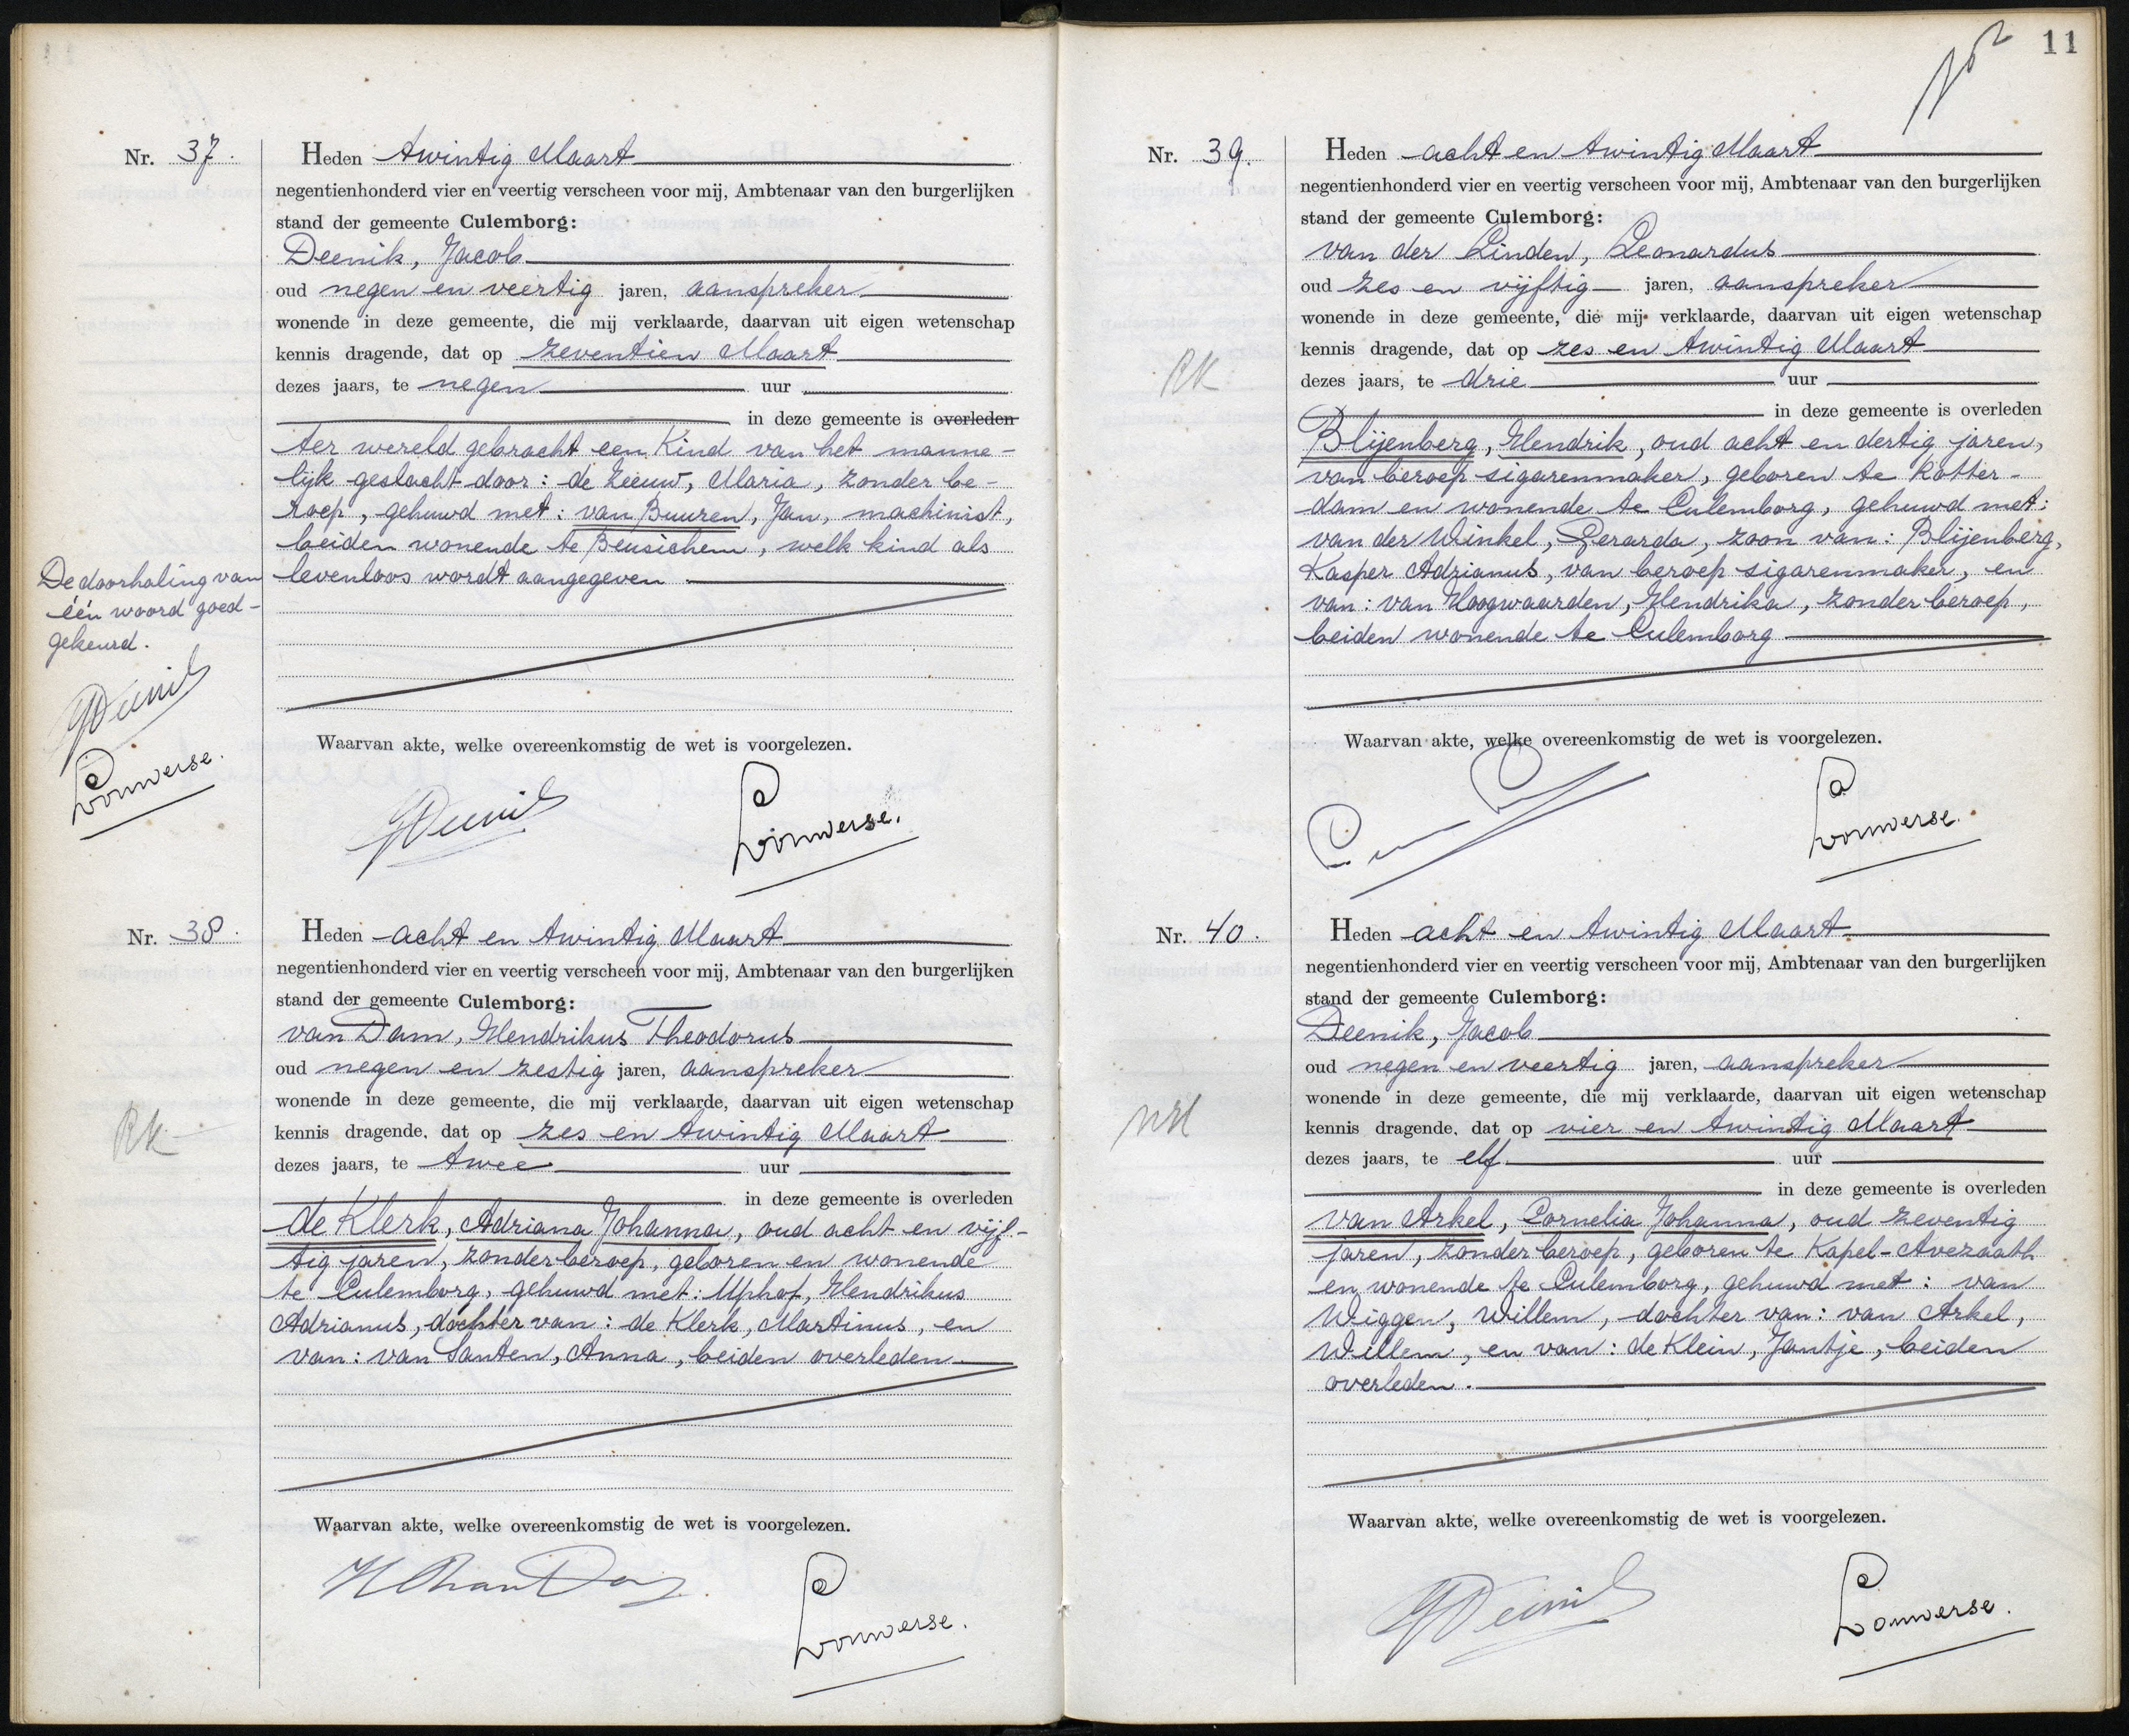 Nr. 37.
Heden twintig Maart
negentienhonderd vier en veertig verscheen voor mij, Ambtenaar van den burgerlijken
stand der gemeente Culemborg:
Deenik, Jacob
oud negen en veertig jaren, aanspreker
wonende in deze gemeente, die mij verklaarde, daarvan uit eigen wetenschap
kennis dragende, dat op zeventien Maart
dezes jaars, te negen uur
in deze gemeente is overleden
ter wereld gebracht een Kind van het manne-
lijk geslacht door: de Zeeuw, Maria, zonder be-
roep, gehuwd met: van Buuren, Jan, machinist,
beiden wonende te Beusichem, welk kind als
levenloos wordt aangegeven
De doorhaling van
één woord goed-
gekeurd.
JDeenik
Louwerse.
Waarvan akte, welke overeenkomstig de wet is voorgelezen.
JDeenik
Louwerse.
Nr. 38.
Heden acht en twintig Maart
negentienhonderd vier en veertig verscheen voor mij, Ambtenaar van den burgerlijken
stand der gemeente Culemborg:
van Dam, Hendrikus Theodorus
oud negen en zestig jaren, aanspreker
wonende in deze gemeente, die mij verklaarde, daarvan uit eigen wetenschap
kennis dragende, dat op zes en twintig Maart
RK
dezes jaars, te twee uur
in deze gemeente is overleden
de Klerk, Adriana Johanna, oud acht en vijf-
tig jaren, zonder beroep, geboren en wonende
te Culemborg, gehuwd met: Uphof, Hendrikus
Adrianus, dochter van: de Klerk, Martinus, en
van: van Santen, Anna, beiden overleden.
Waarvan akte, welke overeenkomstig de wet is voorgelezen.
HThvanDam
Louwerse.
11
Nr. 39.
Heden acht en twintig Maart
negentienhonderd vier en veertig verscheen voor mij, Ambtenaar van den burgerlijken
stand der gemeente Culemborg:
van der Linden, Leonardus
oud zes en vijftig jaren, aanspreker
wonende in deze gemeente, die mij verklaarde, daarvan uit eigen wetenschap
kennis dragende, dat op zes en twintig Maart
RK
dezes jaars, te drie uur
in deze gemeente is overleden
Blijenberg, Hendrik, oud acht en dertig jaren,
van beroep sigarenmaker, geboren te Rotter-
dam en wonende te Culemborg, gehuwd met:
van der Winkel, Gerarda, zoon van: Blijenberg,
Kasper Adrianus, van beroep sigarenmaker, en
van: van Hoogwaarden, Hendrika, zonder beroep,
beiden wonende te Culemborg
Waarvan akte, welke overeenkomstig de wet is voorgelezen.
Louwerse.
Nr. 40.
Heden acht en twintig Maart
negentienhonderd vier en veertig verscheen voor mij, Ambtenaar van den burgerlijken
stand der gemeente Culemborg:
Deenik, Jacob
oud negen en veertig jaren, aanspreker
wonende in deze gemeente, die mij verklaarde, daarvan uit eigen wetenschap
NH
kennis dragende, dat op vier en twintig Maart
dezes jaars, te elf uur
in deze gemeente is overleden
van Arkel, Cornelia Johanna, oud zeventig
jaren, zonder beroep, geboren te Kapel-Avezaath
en wonende te Culemborg, gehuwd met: van
Wiggen, Willem, dochter van: van Arkel,
Willem, en van: de Klein, Jantje, beiden
overleden.
Waarvan akte, welke overeenkomstig de wet is voorgelezen.
JDeenik
Louwerse.